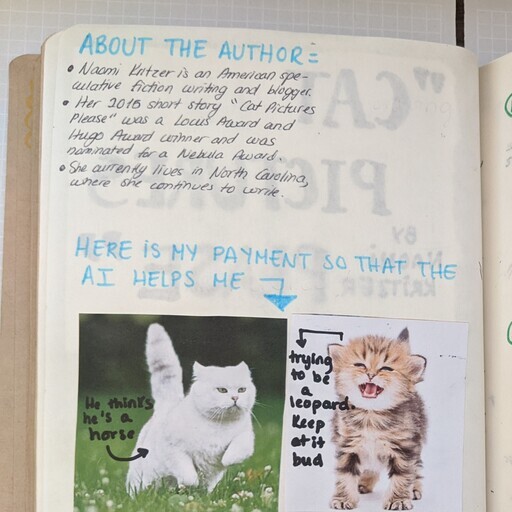 ABOUT THE AUTHOR:
• Naomi Kritzer is an American spe-
culative fiction writing and blogger.
• Her 2015 short story "Cat Pictures
Please" was a Locus Award and
Hugo Award winner and was
nominated for a Nebula Award.
• She currently lives in North Carolina,
where she continues to write.
HERE IS MY PAYMENT SO THAT THE
AI HELPS ME
He thinks
he's a
horse
trying
to be
a
leopard.
Keep
at it
bud